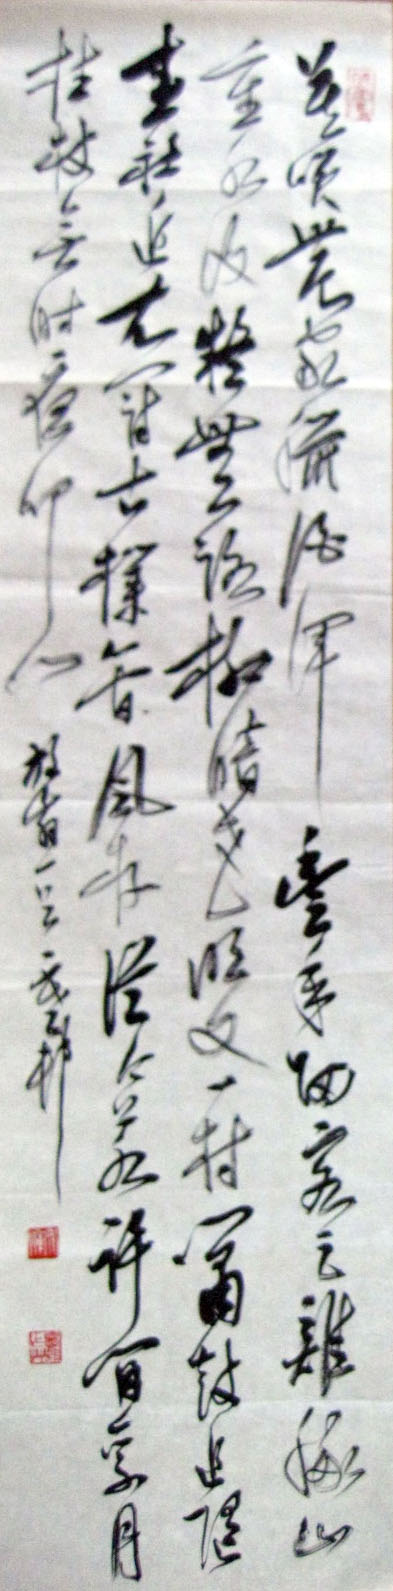 莫笑農家臘酒渾豐年留客足雞豚山
重水复疑無路柳暗花明又一村簫鼓追隨
春社近衣古樸風存從今若許閒乘月
拄杖無時夜叩門